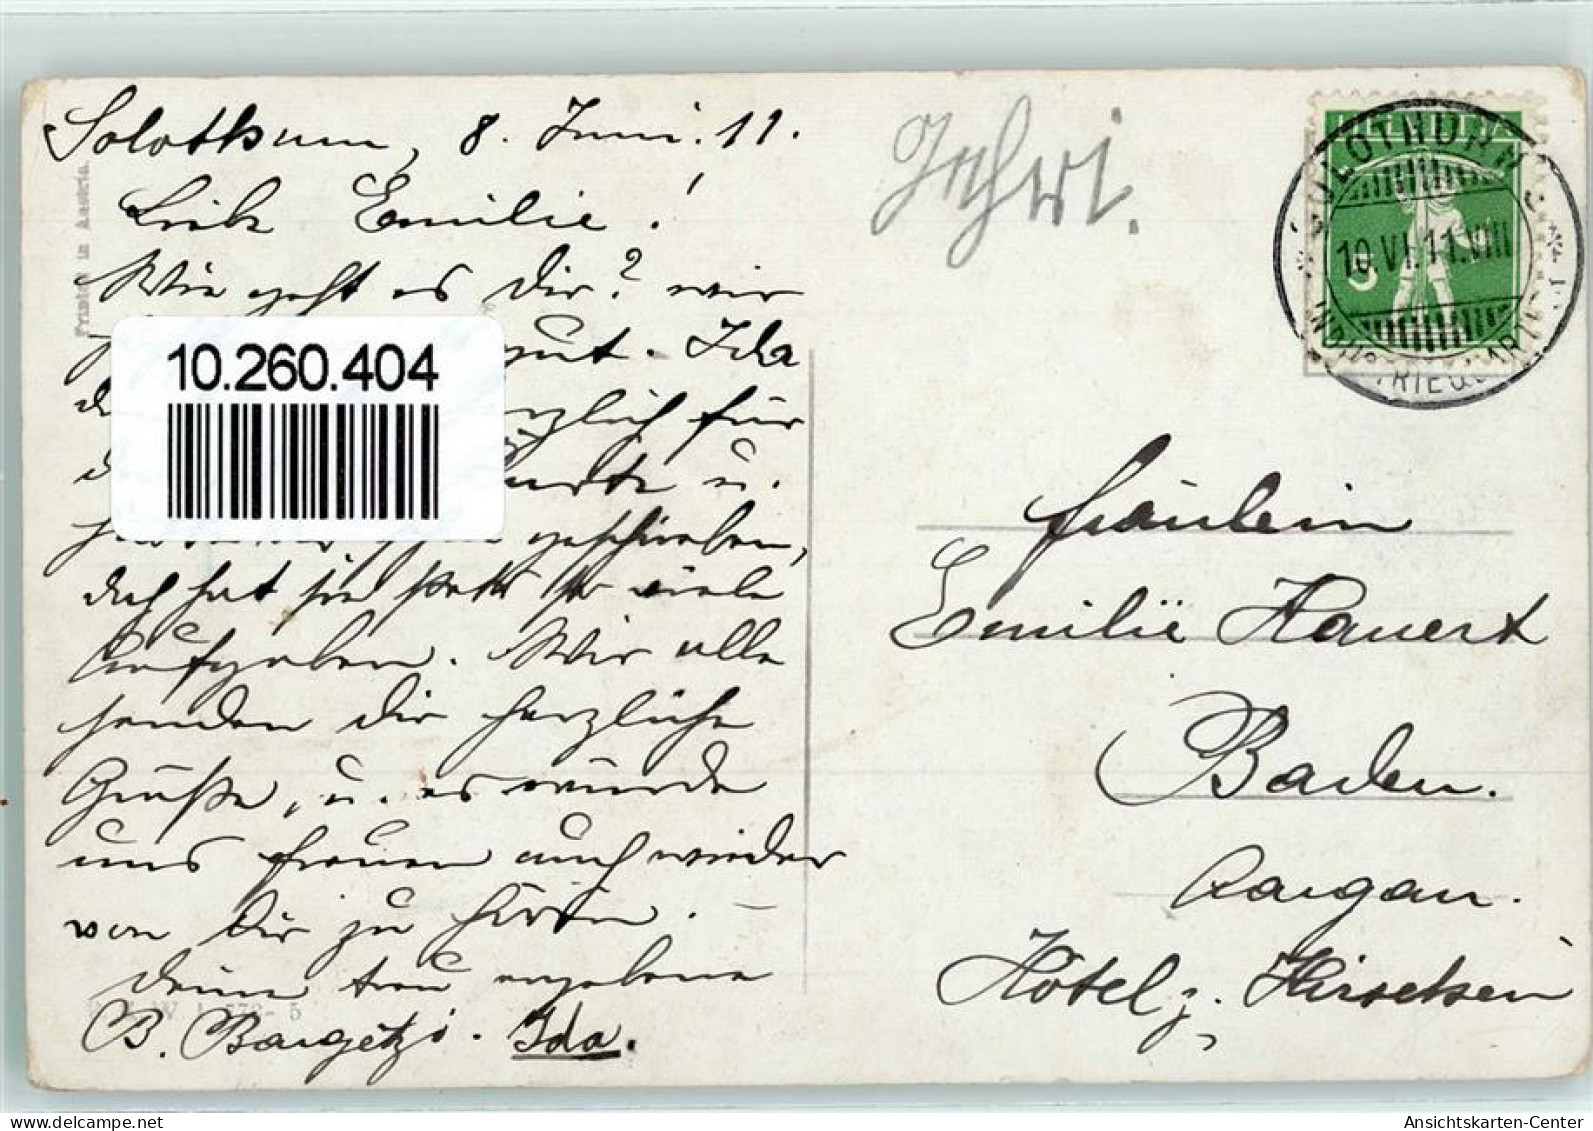 Solothurn, 8. Juni. 11.
Liebe Emilie!
Wie geht es Dir? wir
gut. Ida
herzlich für
Karte u.
geschrieben,
doch hat sie stets so viele
Aufgaben. Wir alle
senden dir herzliche
Grüße, u. es würde
uns freuen auch wieder
von Dir zu hören. –
Deine treu ergebene
B. Bargetzi. Ida.
Printed in Austria.
10.260.404
HELVETIA
5
SOLOTHURN
10.VI.11.VIII
INDUSTRIEQUARTIER
Fräulein
Emilie Hauert
Baden.
Aargau.
Hôtel z. Hirschen
Ansichtskarten-Center